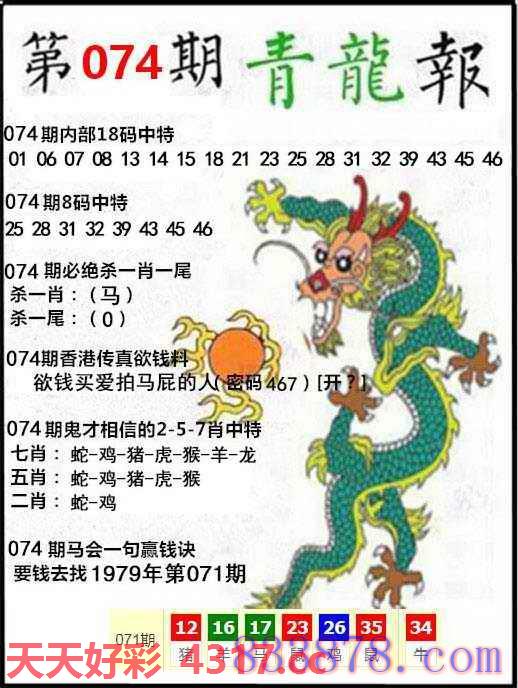 第074期青龍報
074期内部18码中特
01 06 07 08 13 14 15 18 21 23 25 28 31 32 39 43 45 46
074期8码中特
25 28 31 32 39 43 45 46
074期必绝杀一肖一尾
杀一肖：（马）
杀一尾：（0）
074期香港传真欲钱料
欲钱买爱拍马屁的人(密码467)[开？]
074期鬼才相信的2-5-7肖中特
七肖：蛇-鸡-猪-虎-猴-羊-龙
五肖：蛇-鸡-猪-虎-猴
二肖：蛇-鸡
074期马会一句赢钱诀
要钱去找1979年第071期
071期 12 16 17 23 26 35 34
猪 羊 马 鼠 鸡 鼠 牛
天天好彩 4317.cc